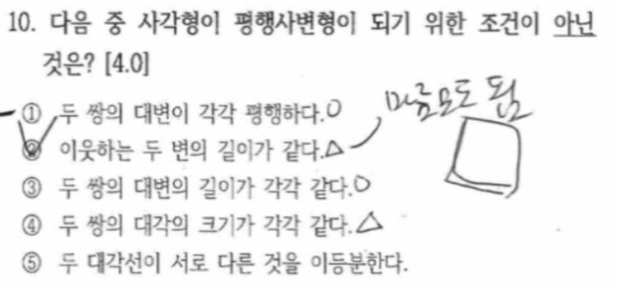 10. 다음 중 사각형이 평행사변형이 되기 위한 조건이 아닌
것은? [4.0]
① 두 쌍의 대변이 각각 평행하다.○
② 이웃하는 두 변의 길이가 같다.△ 마름모도 됨
③ 두 쌍의 대변의 길이가 각각 같다.○
④ 두 쌍의 대각의 크기가 각각 같다.△
⑤ 두 대각선이 서로 다른 것을 이등분한다.